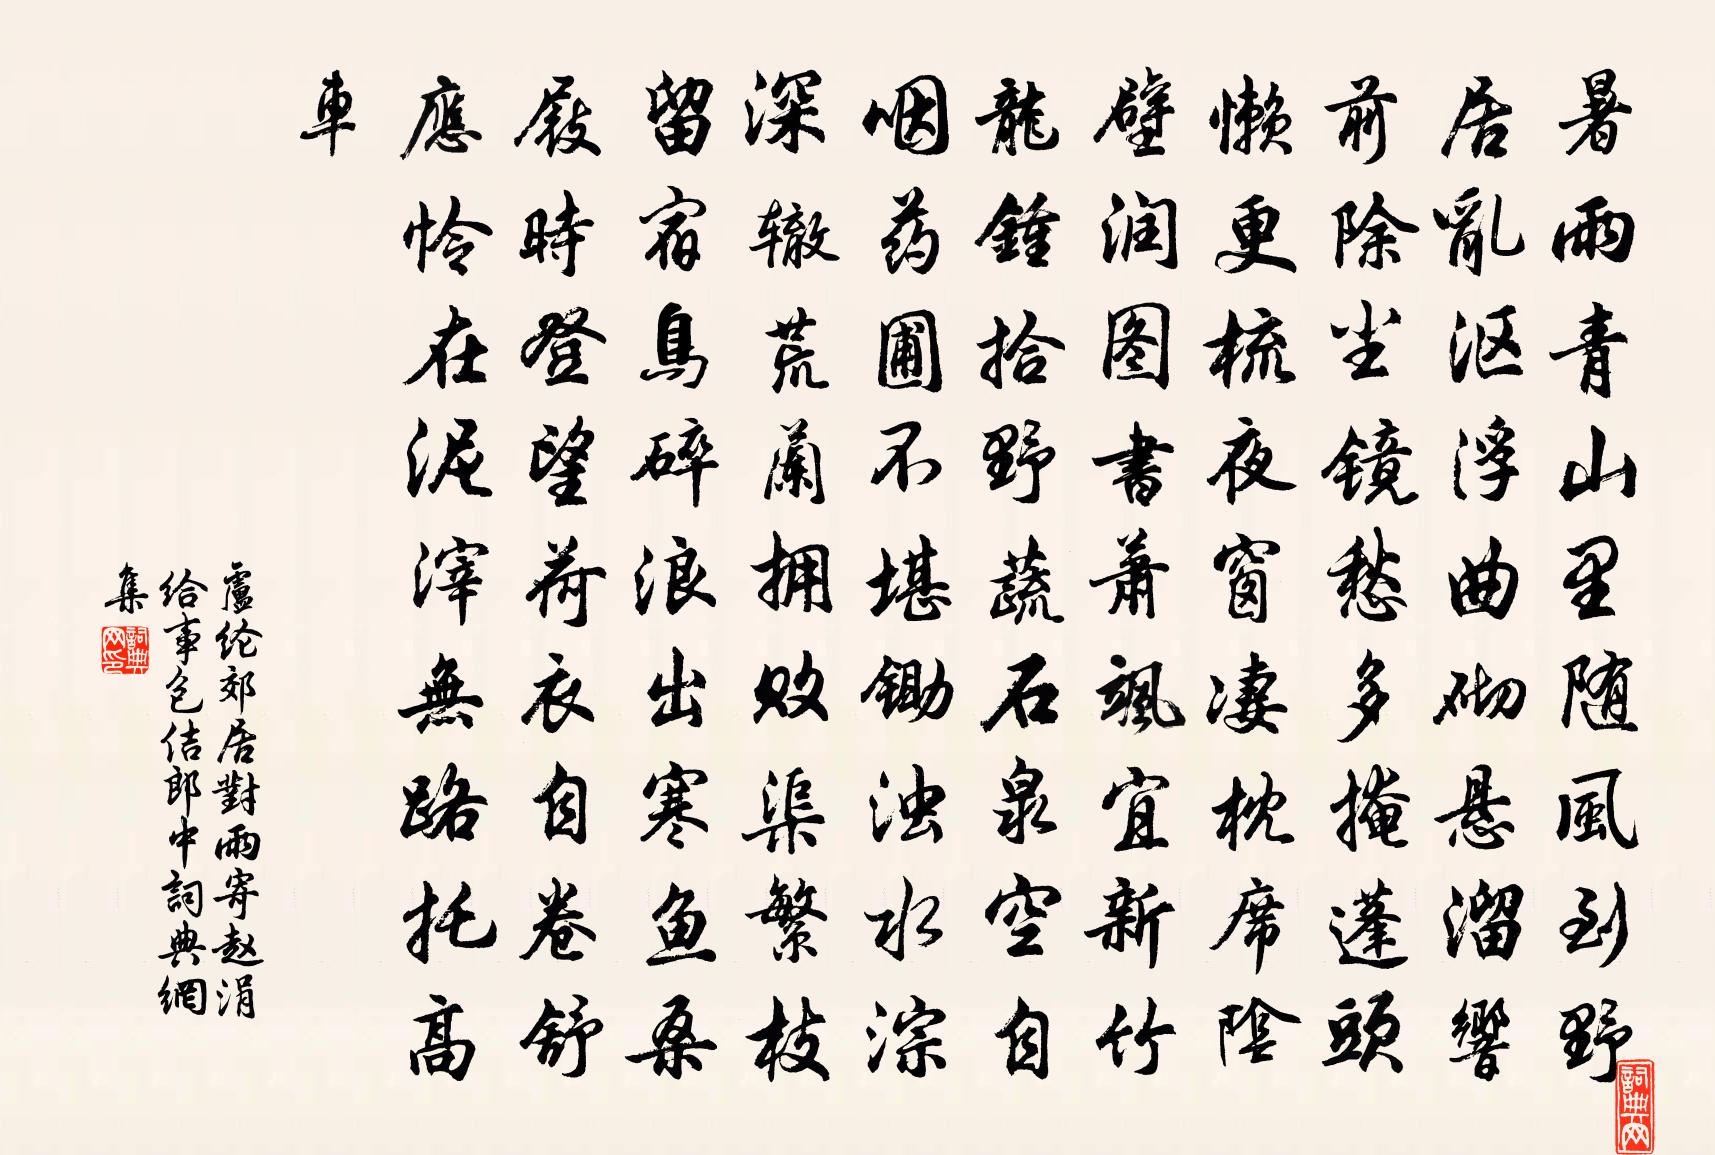 暑雨青山里随風到野
居亂沤浮曲砌悬溜響
前除尘镜愁多掩蓬頭
懒更梳夜窗凄枕席陰
壁润图書萧飒宜新竹
龍鍾拾野蔬石泉空自
咽药圃不堪锄浊水淙
深辙荒蘭拥败渠繁枝
留宿鳥碎浪出寒鱼桑
屐時登望荷衣自卷舒
應怜在泥滓無路托高
車
盧纶郊居對雨寄赵涓
给事包佶郎中詞典網
集
詞典网印
詞典网